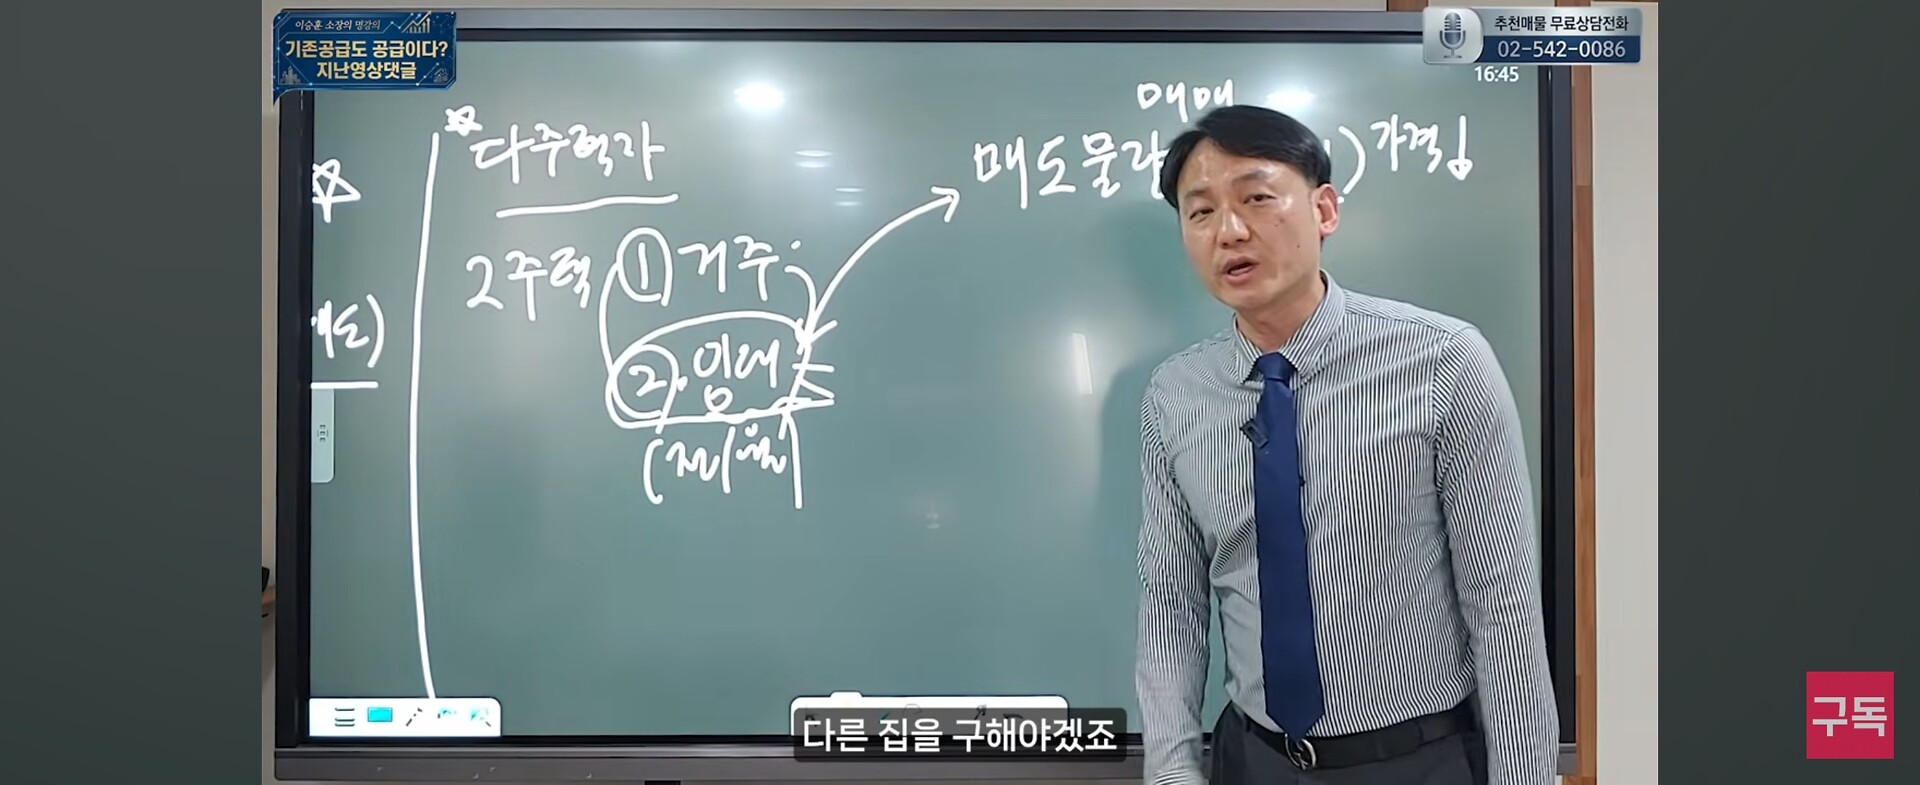 이승훈 소장의 명강의
기존공급도 공급이다?
지난영상댓글
추천매물 무료상담전화
02-542-0086
16:45
다주택자
매매
매도물량
) 가격↓
2주택 ① 거주
② 임대
(전/월
도)
다른 집을 구해야겠죠
구독